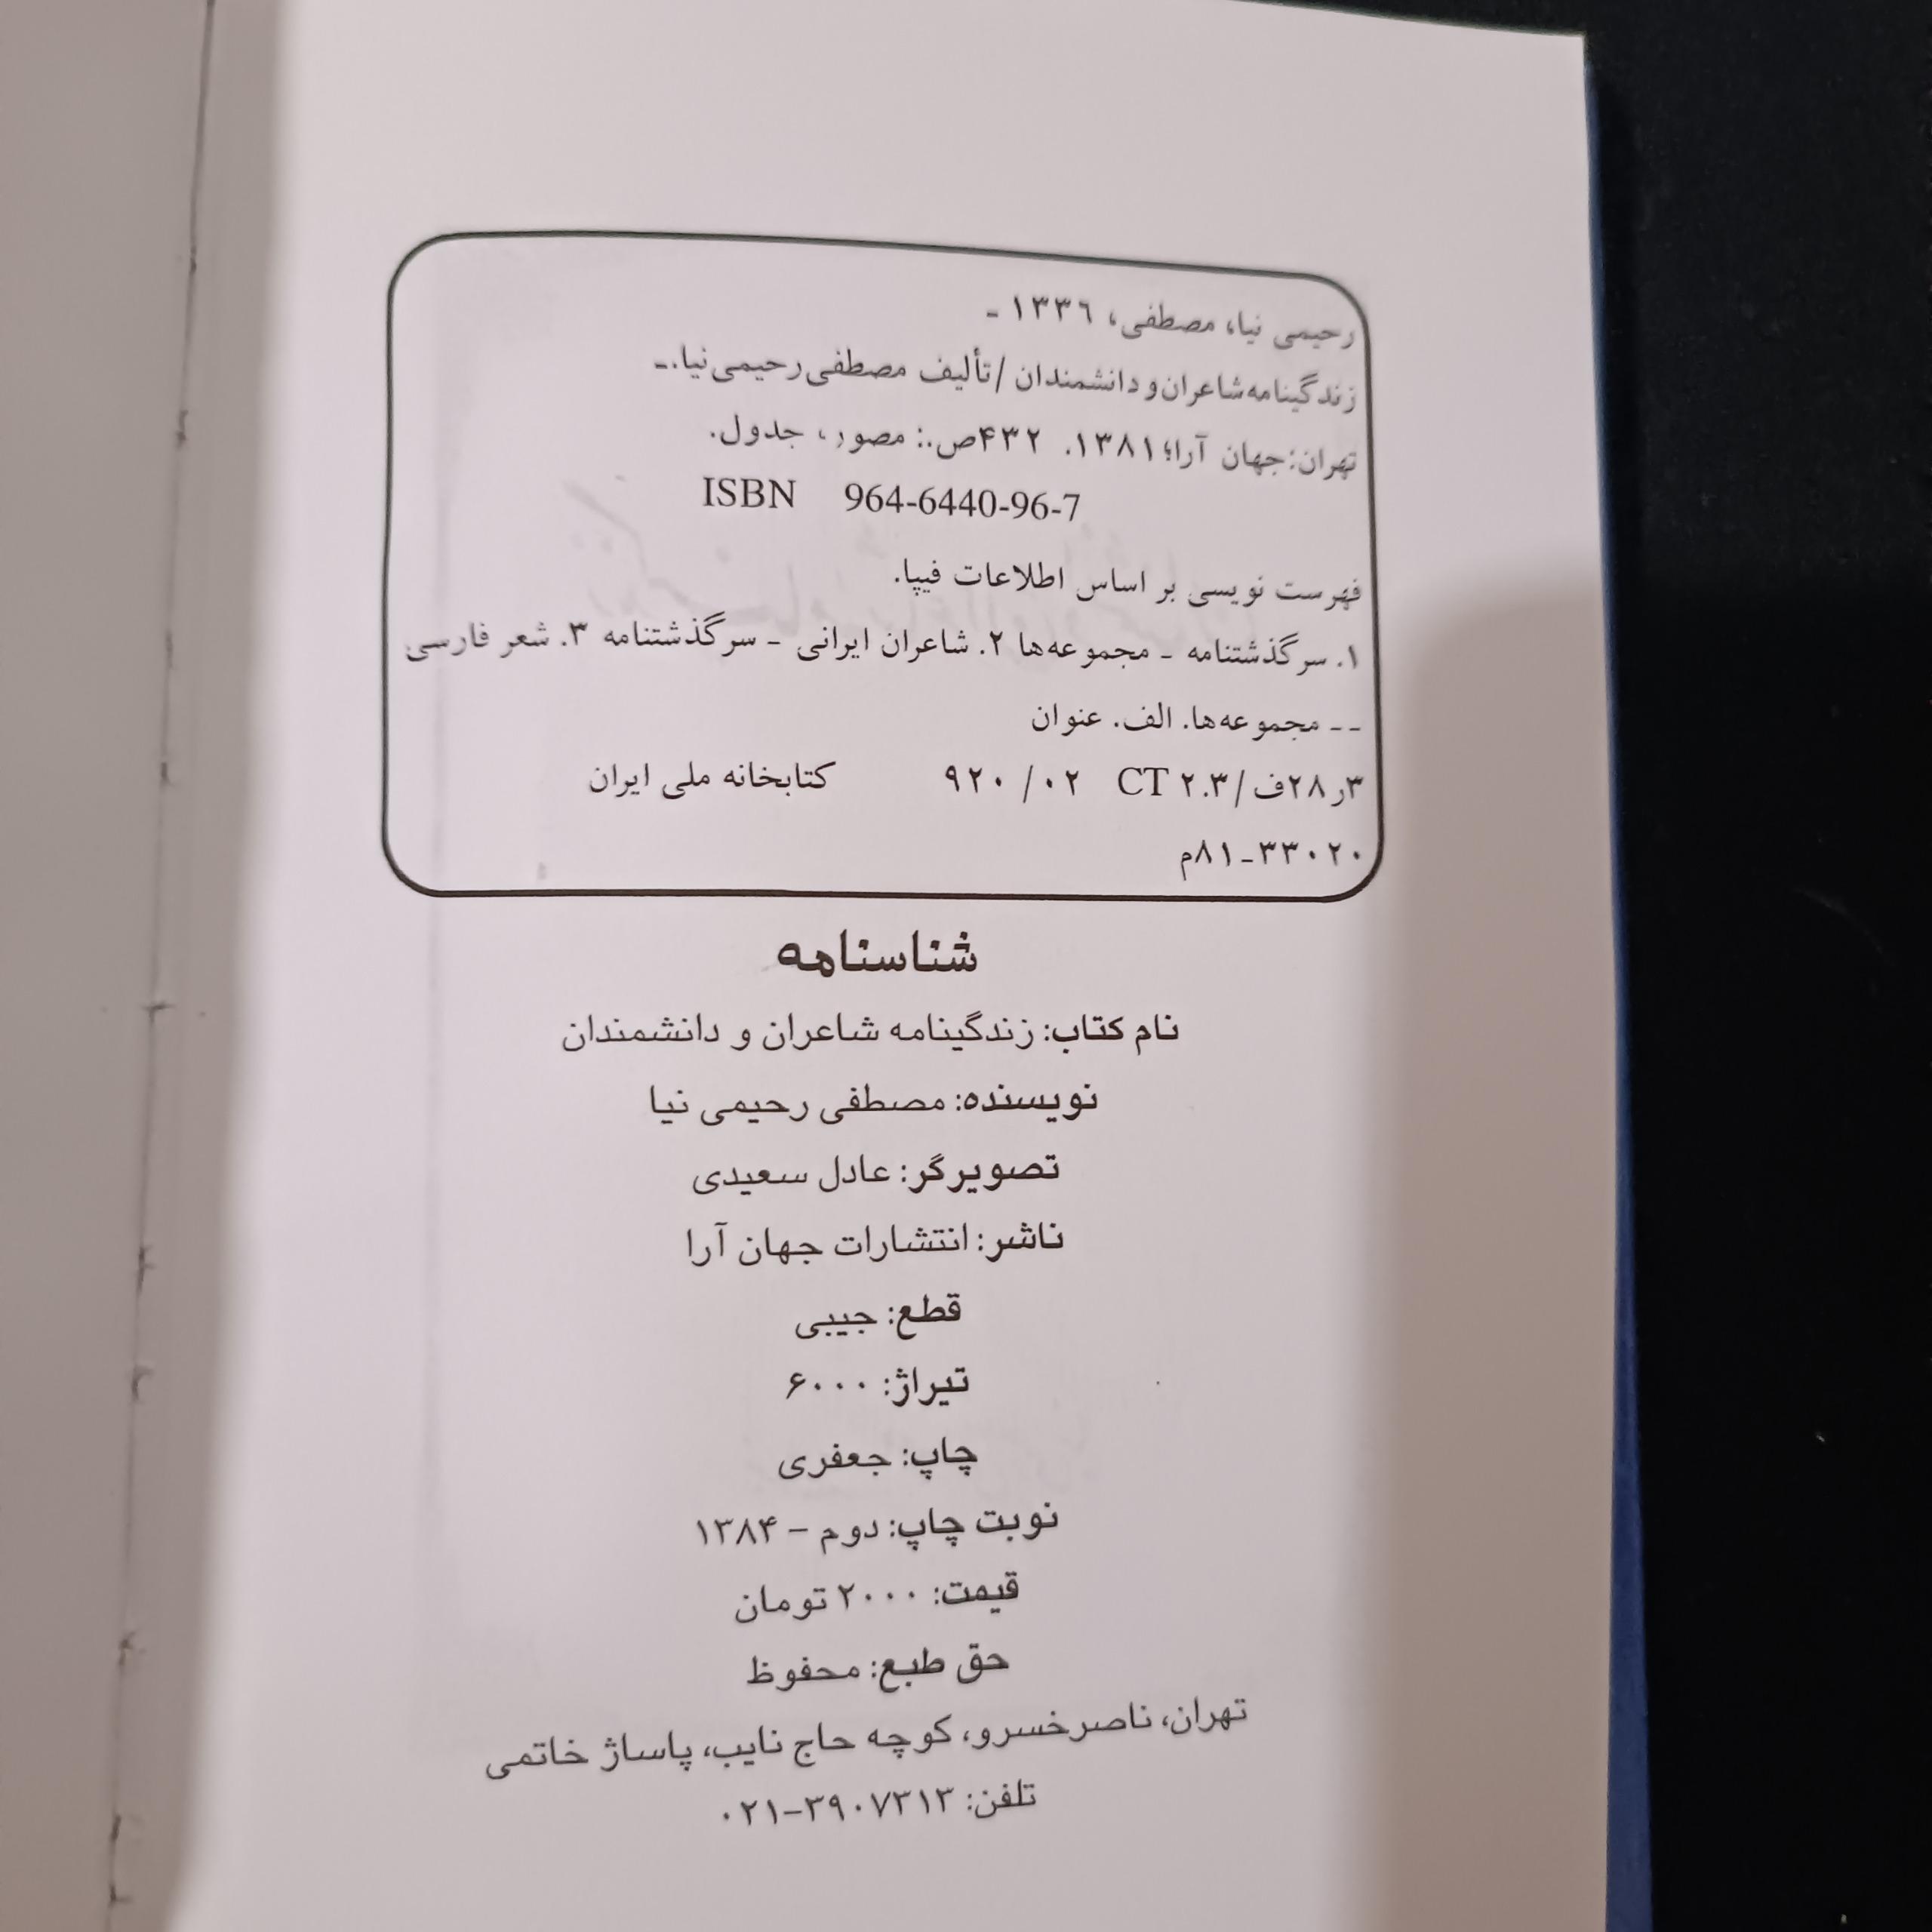 رحیمی نیا، مصطفی، ۱۳۳۶ -
زندگینامه شاعران و دانشمندان / تألیف مصطفی رحیمی‌نیا.-
تهران: جهان آرا؛ ۱۳۸۱. ۴۳۲ص.: مصور، جدول.
ISBN 964-6440-96-7
فهرست نویسی بر اساس اطلاعات فیپا.
۱. سرگذشتنامه - مجموعه‌ها ۲. شاعران ایرانی - سرگذشتنامه ۳. شعر فارسی
-- مجموعه‌ها. الف. عنوان
۳ر۲۸ف/ CT ۲۰۳ ۹۲۰ /۰۲ کتابخانه ملی ایران
۸۱-۳۳۰۲۰م
شناسنامه
نام کتاب: زندگینامه شاعران و دانشمندان
نویسنده: مصطفی رحیمی نیا
تصویرگر: عادل سعیدی
ناشر: انتشارات جهان آرا
قطع: جیبی
تیراژ: ۶۰۰۰
چاپ: جعفری
نوبت چاپ: دوم - ۱۳۸۴
قیمت: ۲۰۰۰ تومان
حق طبع: محفوظ
تهران، ناصرخسرو، کوچه حاج نایب، پاساژ خاتمی
تلفن: ۳۹۰۷۳۱۳-۰۲۱